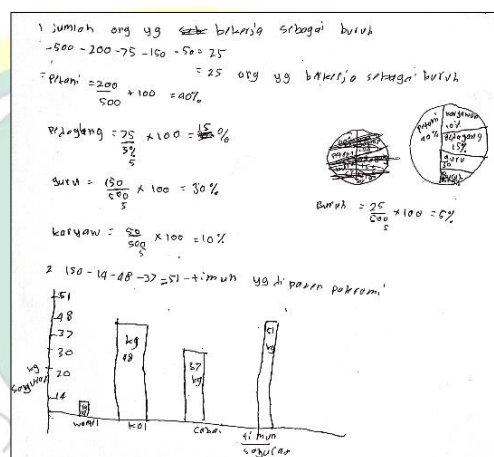 1 jumlah org yg bekerja sebagai buruh
-500-200-75-150-50=25
= 25 org yg bekerja sebagai buruh
= Petani = 200/500 × 100 = 40%
Pedagang = 75/500 5 × 100 = 15%
guru = 150/500 5 × 100 = 30%
karyaw = 50/500 5 × 100 = 10%
Petani 40%
karyawan 10%
pedagang 15%
guru 30
buruh
Buruh = 25/500 5 × 100 = 5%
2 150-14-48-37=51-timun yg di panen pakrami
51
48
37
30
20
14
kg sayuran
kg 48
37 kg
51 kg
wortl
kol
cabai
timun
sayuran